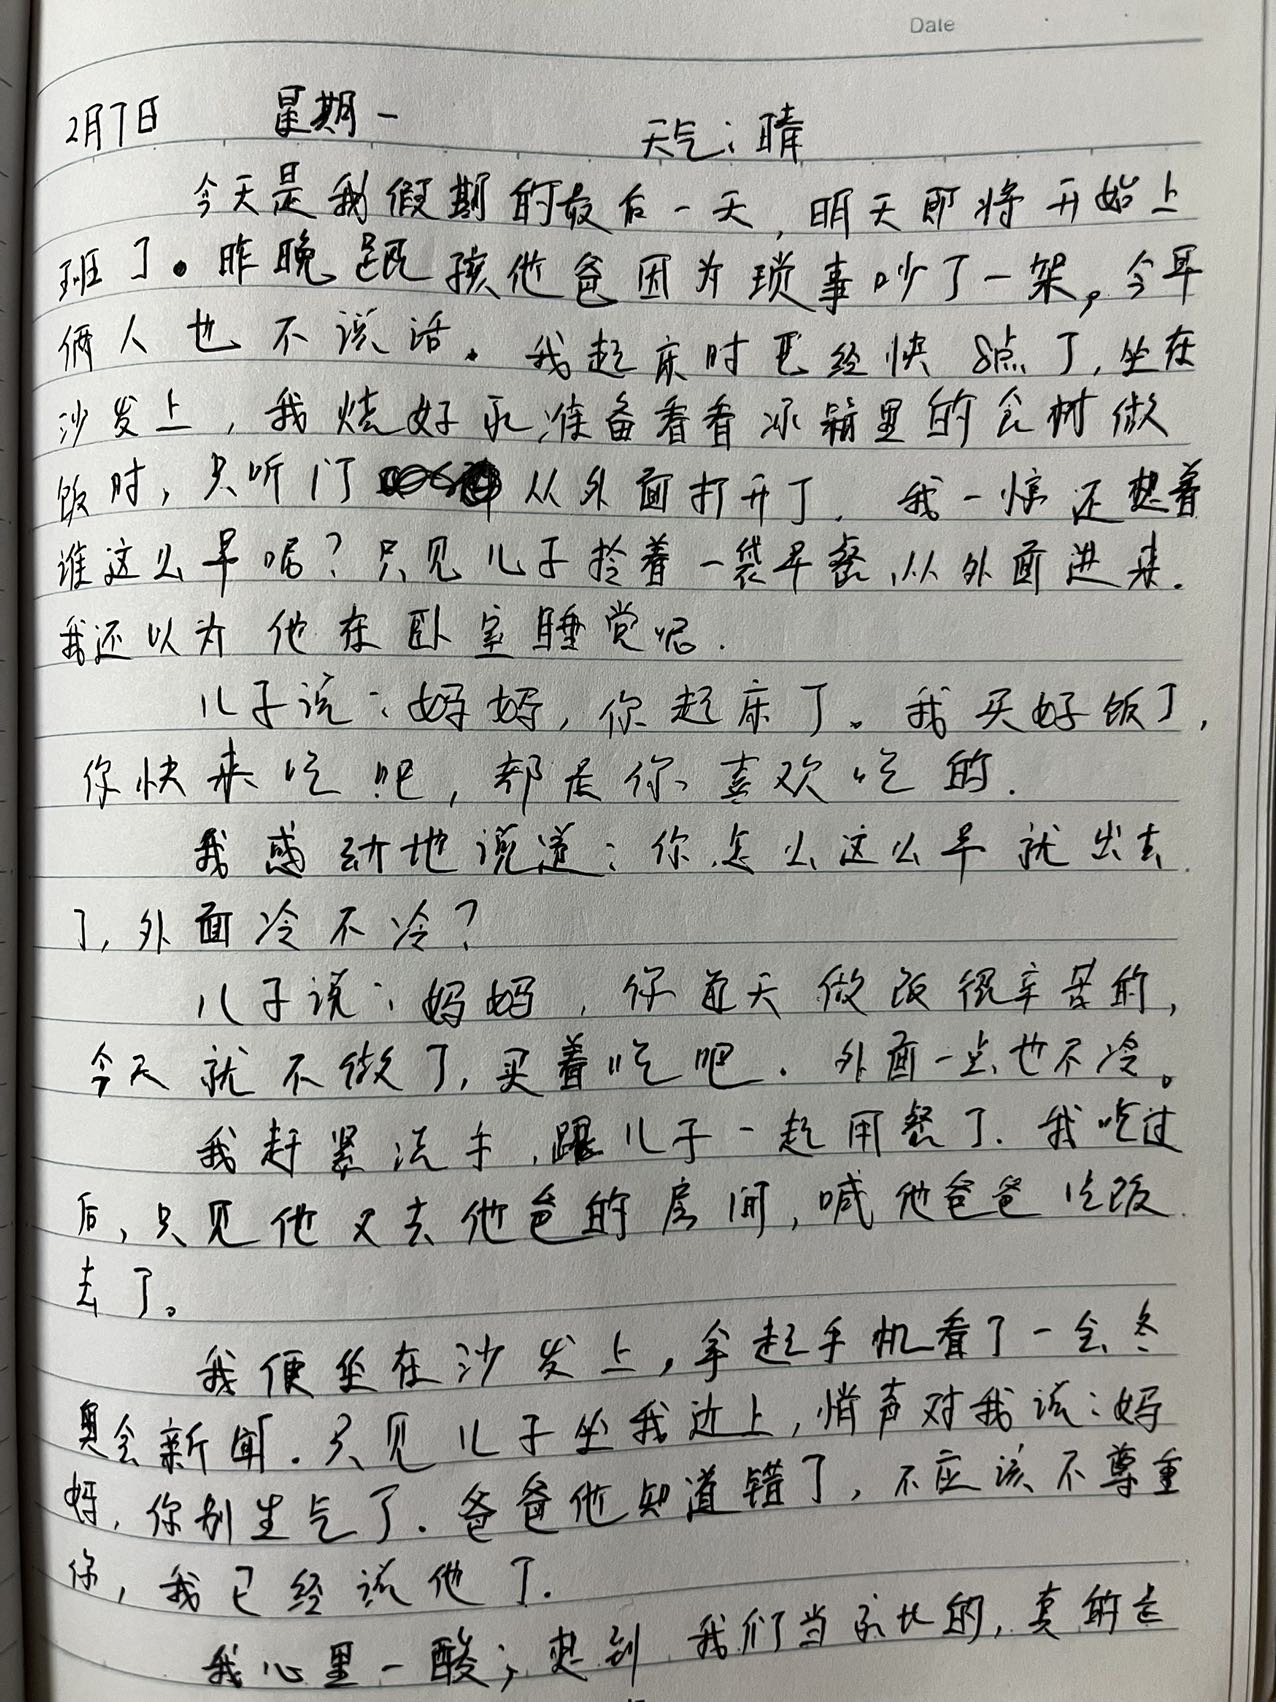 Date
2月7日 星期一 天气:晴
今天是我假期的最后一天,明天即将开始上
班了。昨晚跟孩他爸因为琐事吵了一架,今早
俩人也不说话。我起床时已经快8点了,坐在
沙发上,我烧好水准备看看冰箱里的食材做
饭时,只听门从外面打开了,我一惊还想着
谁这么早呢?只见儿子拎着一袋早餐,从外面进来.
我还以为他在卧室睡觉呢.
儿子说:妈妈,你起床了。我买好饭了,
你快来吃吧,都是你喜欢吃的.
我感动地说道:你怎么这么早就出去
了,外面冷不冷?
儿子说:妈妈,你每天做饭很辛苦的,
今天就不做了,买着吃吧.外面一点也不冷。
我赶紧洗手,跟儿子一起用餐了.我吃过
后,只见他又去他爸的房间,喊他爸爸吃饭
去了。
我便坐在沙发上,拿起手机看了一会冬
奥会新闻.只见儿子坐我边上,悄声对我说:妈
妈,你别生气了.爸爸他知道错了,不应该不尊重
你,我已经说他了.
我心里一酸,想到我们当的,真的是